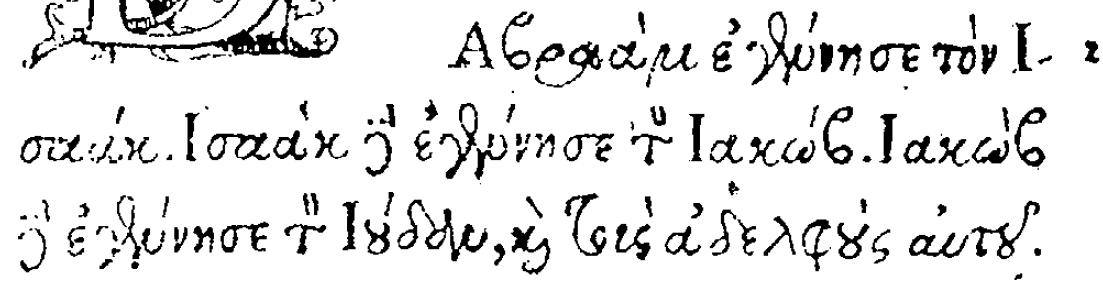 Αβραὰμ ἐγέννησε τὸν Ι- 2
σαάκ. Ισαὰκ δὲ ἐγέννησε τὸν Ιακώβ. Ιακὼβ
δὲ ἐγέννησε τὸν Ιούδαν, καὶ τοὺς ἀδελφοὺς αὐτοῦ.